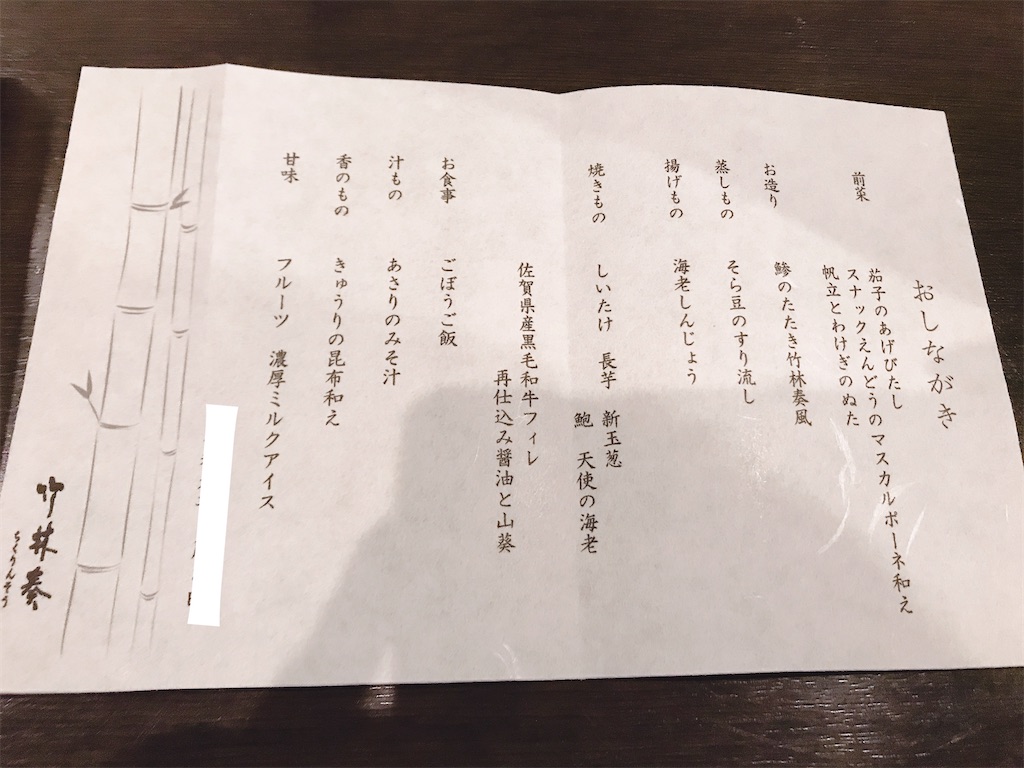 おしながき
前菜
茄子のあげびたし
スナックえんどうのマスカルポーネ和え
帆立とわけぎのぬた
お造り
鯵のたたき竹林奏風
蒸しもの
そら豆のすり流し
揚げもの
海老しんじょう
焼きもの
しいたけ 長芋 新玉葱
鮑 天使の海老
佐賀県産黒毛和牛フィレ
再仕込み醤油と山葵
お食事
ごぼうご飯
汁もの
あさりのみそ汁
香のもの
きゅうりの昆布和え
甘味
フルーツ 濃厚ミルクアイス
竹林奏
ちくりんそう